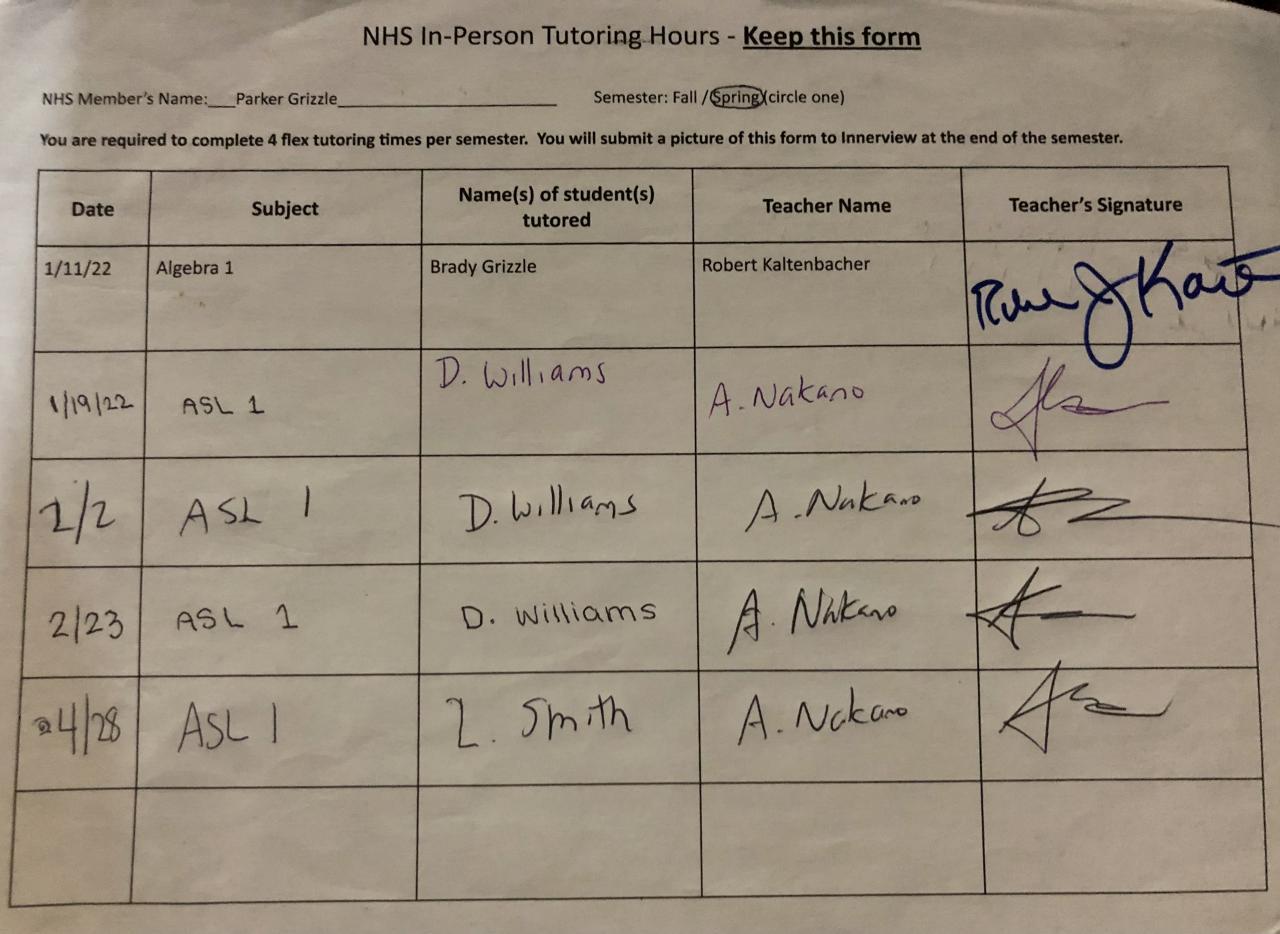 NHS In-Person Tutoring Hours - Keep this form
NHS Member's Name:___Parker Grizzle______________________ Semester: Fall / Spring (circle one)
You are required to complete 4 flex tutoring times per semester. You will submit a picture of this form to Innerview at the end of the semester.
Date Subject Name(s) of student(s) tutored Teacher Name Teacher's Signature
1/11/22 Algebra 1 Brady Grizzle Robert Kaltenbacher
1/19/22 ASL 1 D. Williams A. Nakano
2/2 ASL 1 D. Williams A. Nakano
2/23 ASL 1 D. Williams A. Nakano
4/28 ASL 1 Z. Smith A. Nakano